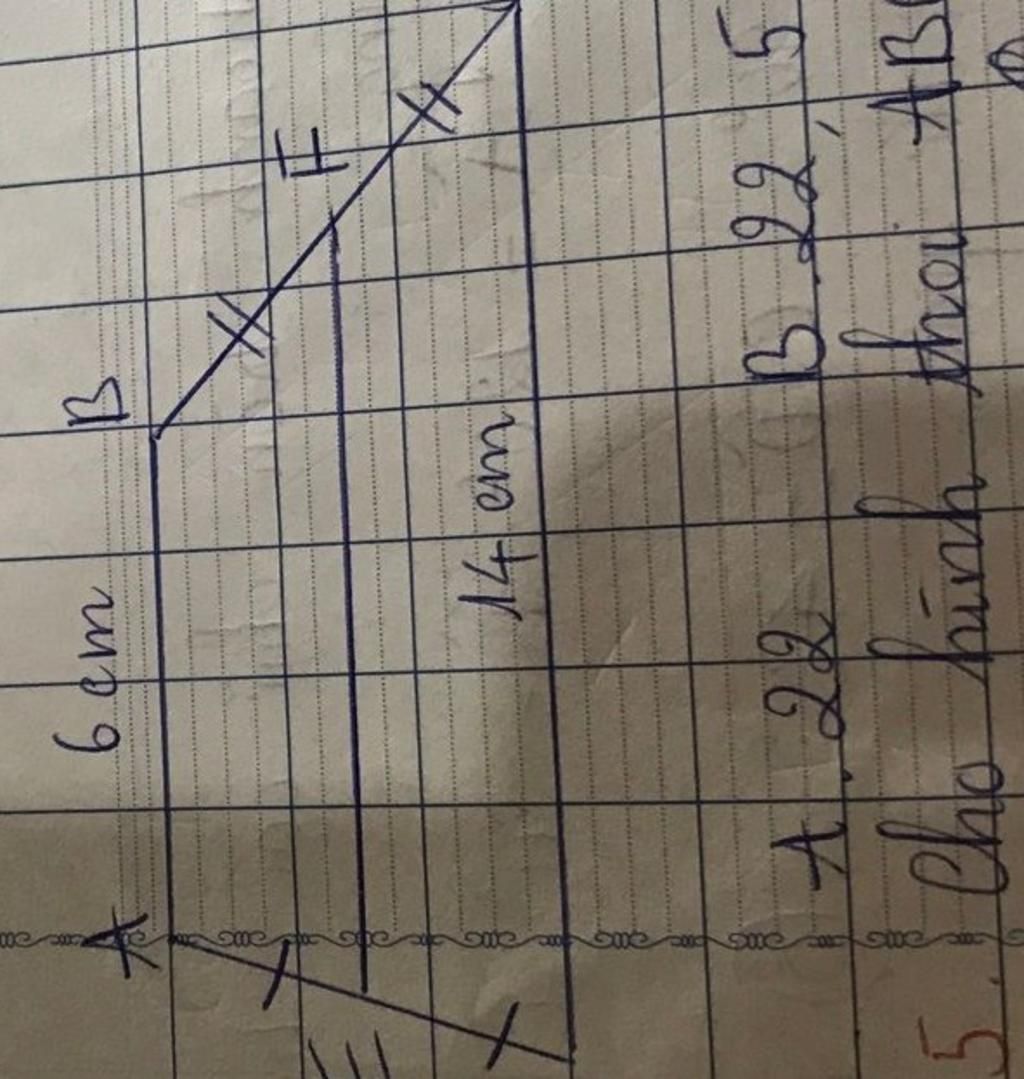 A 6 cm B
E F
14 cm
A. 22 B. 22,5
5. Cho hình thoi AB